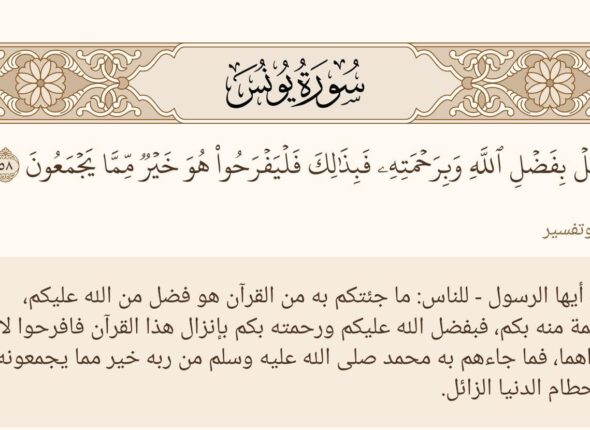 سُورَةُ يُونُسَ
قُلۡ بِفَضۡلِ ٱللَّهِ وَبِرَحۡمَتِهِۦ فَبِذَٰلِكَ فَلۡيَفۡرَحُواْ هُوَ خَيۡرٞ مِّمَّا يَجۡمَعُونَ ٥٨
وتفسير
أيها الرسول - للناس: ما جئتكم به من القرآن هو فضل من الله عليكم،
منه بكم، فبفضل الله عليكم ورحمته بكم بإنزال هذا القرآن فافرحوا لا
فما جاءهم به محمد صلى الله عليه وسلم من ربه خير مما يجمعونه
حطام الدنيا الزائل.